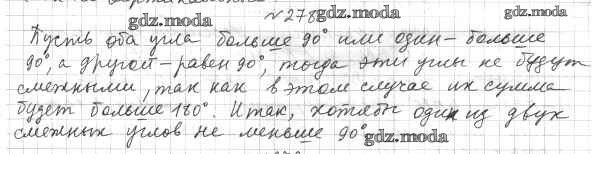 №278 gdz.moda
gdz.moda
Пусть оба угла больше 90° или один - больше
90°, а другой - равен 90°, тогда эти углы не будут
смежными, так как в этом случае их сумма
будет больше 180°. Итак, хотябы один из двух
смежных углов не меньше 90°
gdz.moda